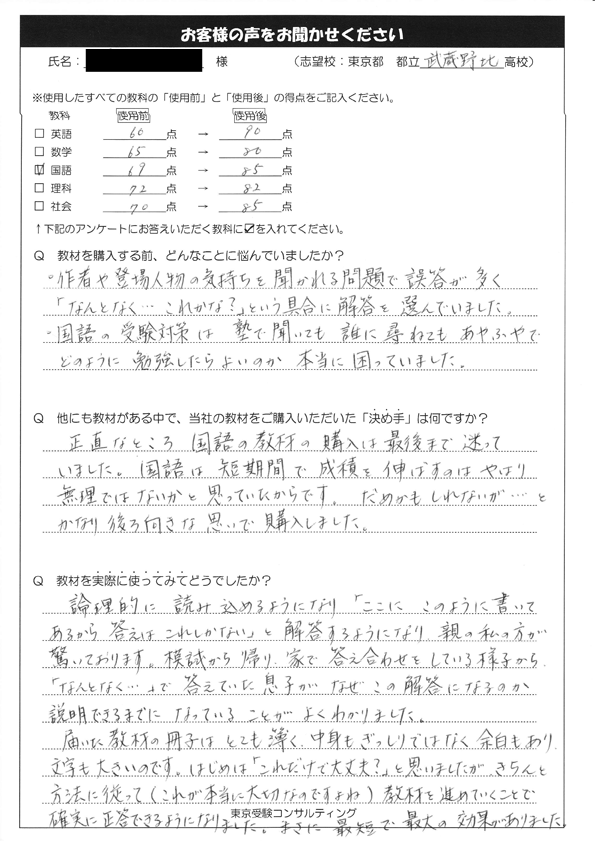 お客様の声をお聞かせください
氏名： 様 （志望校：東京都 都立 武蔵野北 高校）
※使用したすべての教科の「使用前」と「使用後」の得点をご記入ください。
教科 使用前 使用後
□ 英語 60 点 → 90 点
□ 数学 65 点 → 80 点
☑ 国語 69 点 → 85 点
□ 理科 72 点 → 82 点
□ 社会 70 点 → 85 点
↑下記のアンケートにお答えいただく教科に☑を入れてください。
Q 教材を購入する前、どんなことに悩んでいましたか？
・作者や登場人物の気持ちを聞かれる問題で誤答が多く
「なんとなく… これかな？」という具合に解答を選んでいました。
・国語の受験対策は 塾で聞いても 誰に尋ねても あやふやで
どのように勉強したらよいのか 本当に困っていました。
Q 他にも教材がある中で、当社の教材をご購入いただいた「決め手」は何ですか？
正直なところ 国語の教材の購入は最後まで迷って
いました。国語は 短期間で 成積を伸ばすのは やはり
無理ではないかと思っていたからです。 だめかもしれないが…と
かなり後ろ向きな思いで購入しました。
Q 教材を実際に使ってみてどうでしたか？
論理的に 読み込めるようになり「ここに このように書いて
あるから 答えは これしかない」と 解答するようになり、親の私の方が
驚いております。模試から帰り、家で 答え合わせをしている様子から、
「なんとなく…」で 答えていた息子が なぜ この解答になるのか
説明できるまでに なっていることが よくわかりました。
届いた教材の冊子は とても薄く、中身もぎっしりではなく 余白もあり、
文字も大きいのです。はじめは「これだけで大丈夫？」と思いましたが きちんと
方法に従って（これが本当に大切なのですよね）教材を進めていくことで
確実に正答できるようになりました。まさに 最短で最大の効果がありました。
東京受験コンサルティング